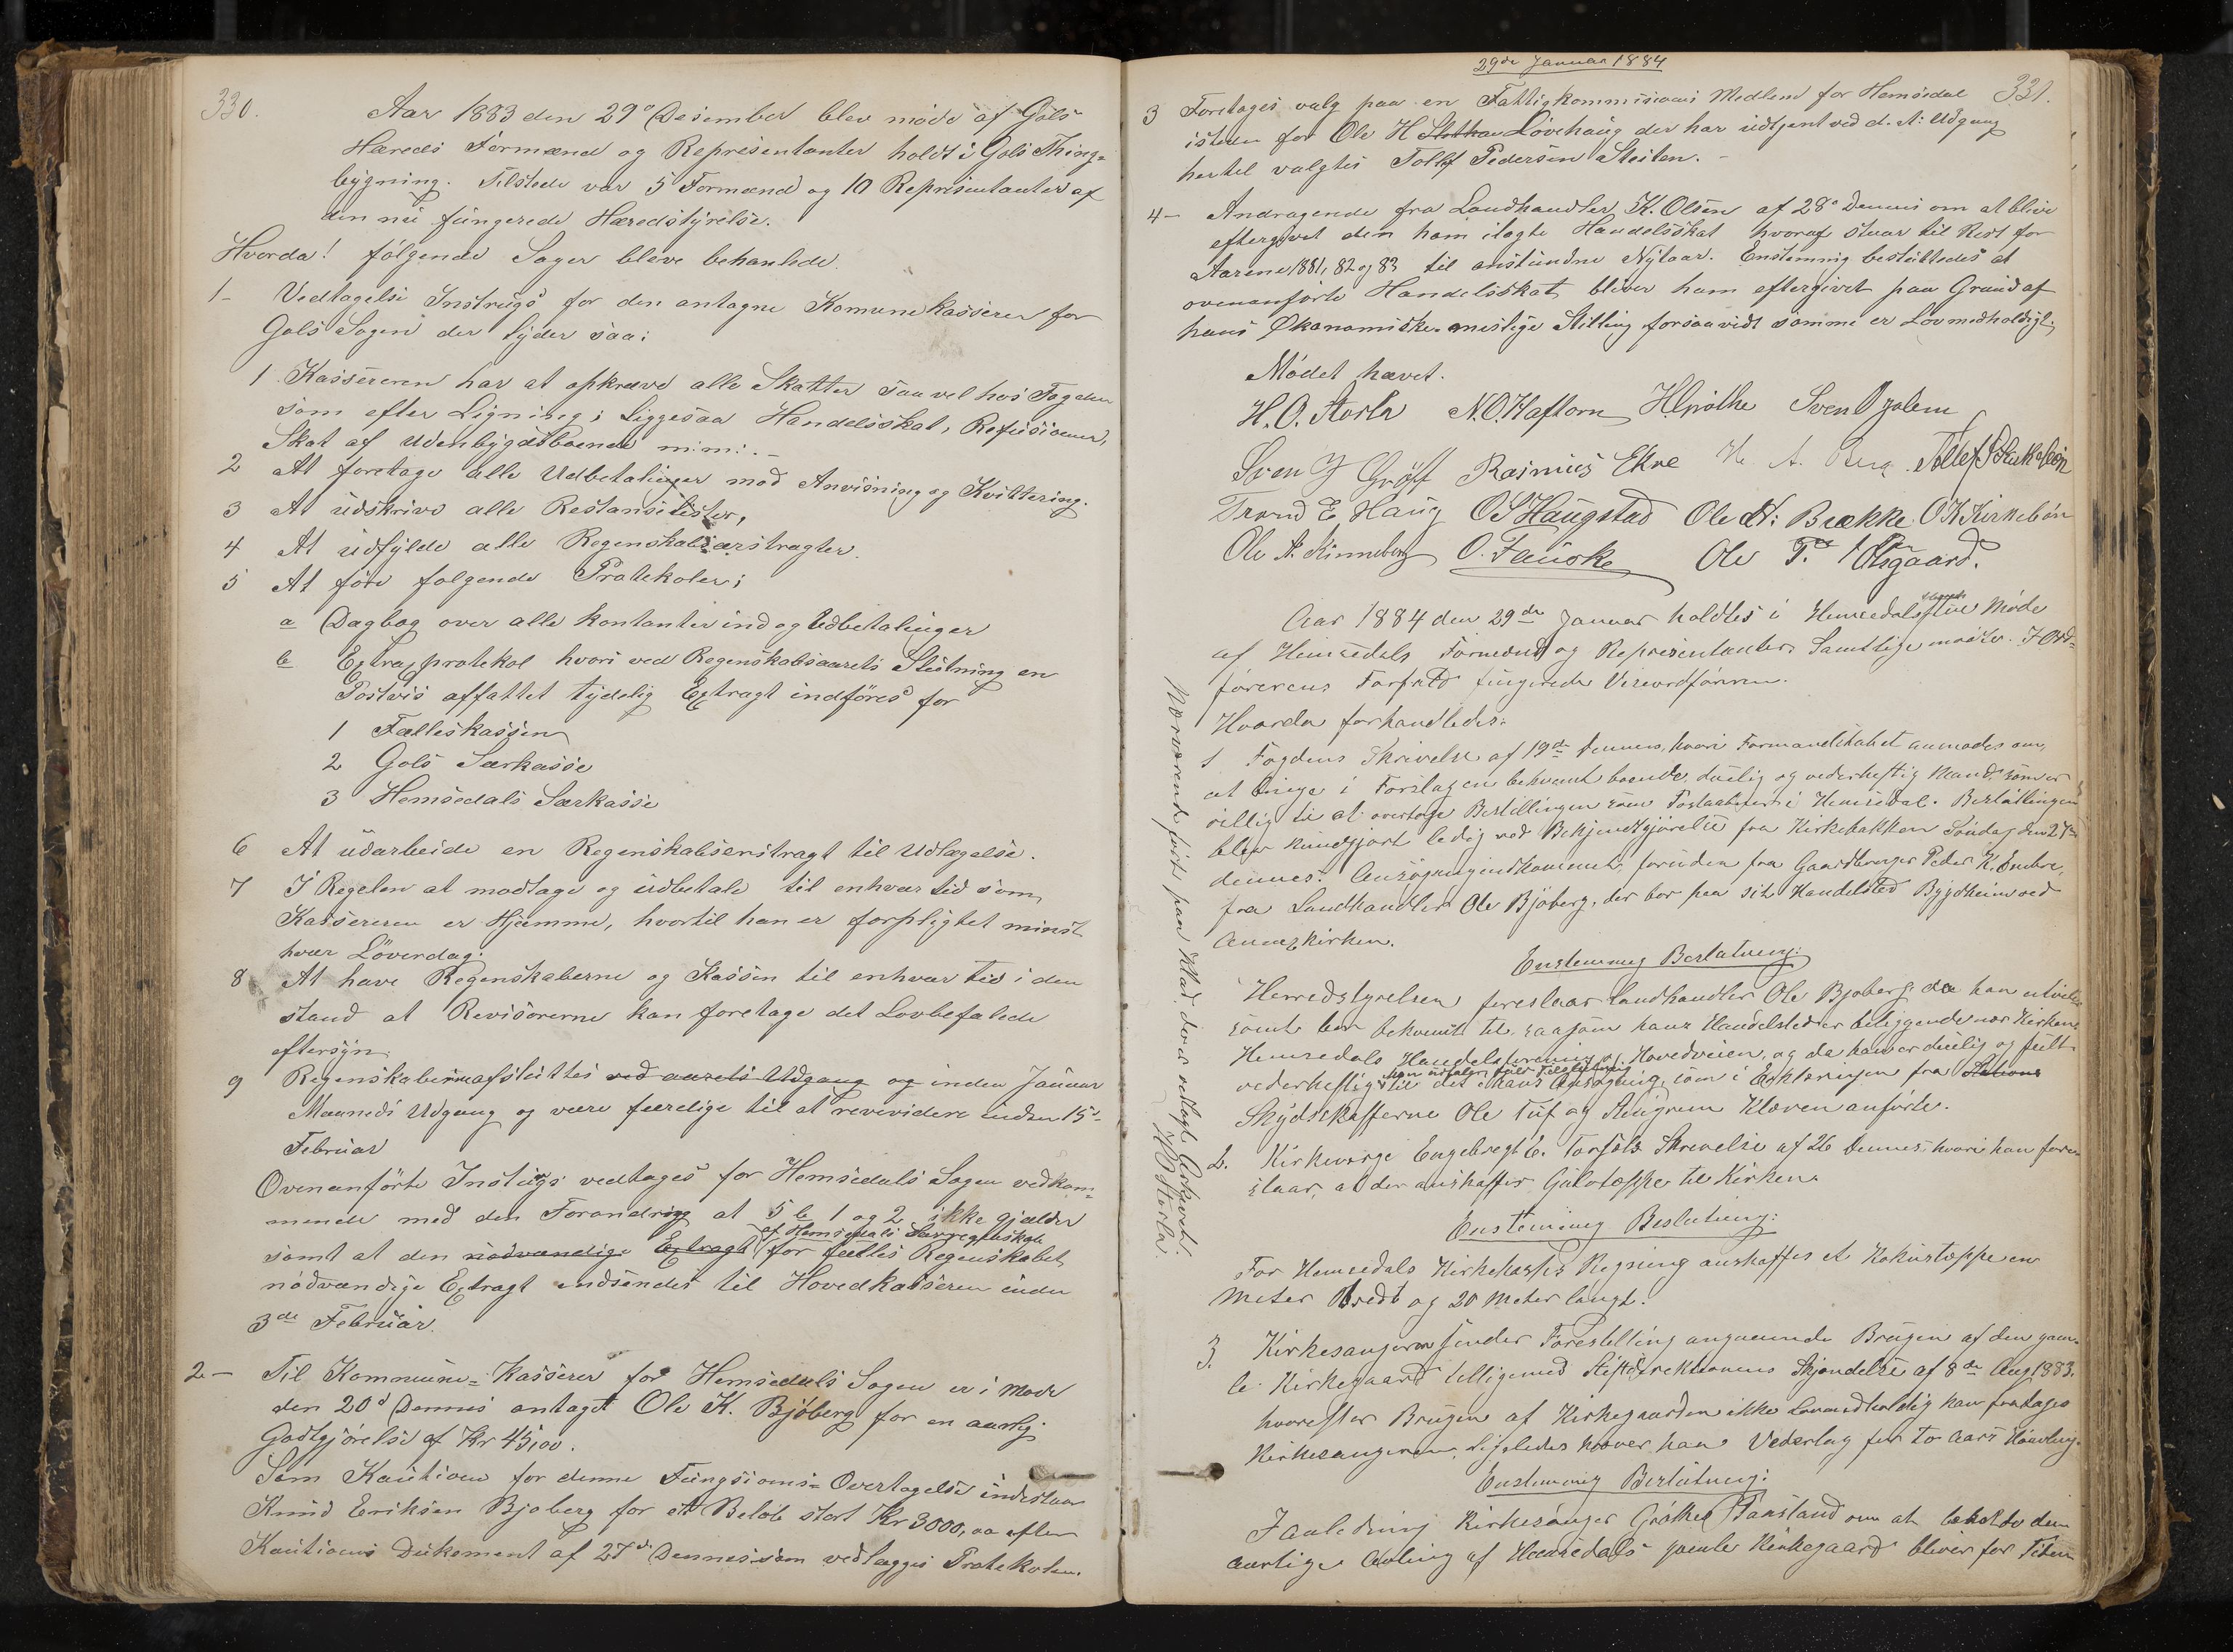 330.
Aar 1883 den 29de Desember blev møde af Gols
Hæreds Formænd og Represintanter holdt i Gols Thing=
bygning. Tilstede var 5 Formænd og 10 Represintanter af
den nu fungerede Hæredstyrelse.
Hvorda! følgende Sager bleve behanlede.
1- Vedtagelse Instrugs for den antagne Komunekasserer for
Gols Sogen der lyder saa:
1 Kassereren har at opkræve alle Skatter saavel hos Fogden
som efter Ligning; Liggesaa Handelsskat, Refusioner,
Skat af Udenbygdsboende m:m: -
2 At foretage alle Udbetalinger mod Anvisning og Kvittering.
3 At udskrive alle Restanselister,
4 At udfylde alle Regenskabsærstragter.
5 At føre følgende Protekoler;
a Dagbog over alle kontanter ind og Udbetalinger
b Extragprotekol hvori ved Regenskabsaarets Slutning en
Postvis affattet tydelig Extragt indføres for
1 Fælleskassen
2 Gols Særkasse
3 Hemsedals Særkasse
6 At udarbeide en Regenskabsenstragt til Udlægelse.
7 I Regelen at modtage og udbetale til enhver tid som
Kassereren er Hjemme, hvortil han er forpligtet minst
hver Löverdag.
8 At have Regenskaberne og Kassen til enhver tid i den
stand at Revisorerne kan foretage det Lovbefalede
eftersyn.
9 Regenskaberne afsluttes ved aarets Udgang og inden Januar
Maaneds Udgang og være færdige til at revividere inden 15de
Februar
Ovenanførte Instrugs vedtages for Hemsedals Sogen vedkom=
mende med den Forandring at 5 b 1 og 2 ikke gjælder
af Hemsedals Særregenskab
samt at den nødvændige Extragt for fælles Regenskabet
nødvændige Extragt indsendes til Hovedkasseren inden
3de Februar.
2- Til Kommune=Kasserer for Hemsedals Sogen er i Møde
den 20de Dennes antaget Ole K. Bjøberg for en aarlig
Godtgjørelse af Kr 45,00.
Som Kaution for denne Fungsions=Overtagelse indestaar
Knud Eriksen Bjøberg for et Beløb stort Kr 3000,00 efter
Kautions Dukement af 27de Dennes som vedlægges Protekolen.
29de Januar 1884
331.
3 Foretages valg paa en Fattigkommisions Medlem for Hemsedal
isteden for Ole H Løvehaug der har udtjent ved d: A: Udgang
hertil valgtes Tollef Pedersen Ulsiten. -
4- Andragende fra Landhandler K. Olsen af 28de Dennes om at blive
eftergivet den ham ilagte Handelsskat hvoraf staar til Rest for
Aarene 1881, 82 og 83 til anstundne Nytaar. Enstemmig besluttedes at
ovenanførte Handelsskat bliver ham eftergivet paa Grund af
hans Økonomiske mislige Stilling forsaavidt samme er Lovmedholdigt.
Mødet hævet.
H. O. Storla N. O. Haftorn H Grøthe Sven Ojolem
Sven Grøtt Rasmus Ekre H. A. Berg
Trond E Haug O S Haugstad Ole H: Brække O K Kirkebøn
Ole A. Kinneberg O. Fauske Ole T. Ulsgaard.
Aar 1884 den 29de Januar holdtes i Hemsedals stue Møde
af Hemsedals Formænd og Represintanter. Samtlige mødte. I Ord-
førerens Forfald fungerede Viseordføreren.
Hvorda forhandledes:
1 Fogdens Skrivelse af 19de dennes, hvori Formandskabet anmodes om,
at bringe i Forslag en bekvemt boende, duelig og vederheftig Mand, som er
villig til at overtage Bestillingen som Postaabner i Hemsedal. Bestillingen
blev kundgjort ledig ved Bekjendtgjørelse fra Kirkebakken Søndag den 27de
dennes. Ansøgning indkommet, foruden fra Gaardbruger Peder K. Embre,
fra Landhandler Ole Bjøberg, der bor paa sit Handelsted Bygdheim ved
Annexkirken.
Enstemmig Beslutning:
Herredstyrelsen foreslaar Landhandler Ole Bjøberg, da han
somt bor bekvemt til, saasom hans Handelsted er beliggende nær Kirken,
Hemsedals Handelsforening og Hovedveien, og da han er duelig og fuldt
vederheftig til det i hans Ansøgning, som i Erklæringen fra Stations
Skydsskafferne Ole Tuf og Steingrim Kløven anførte.
2. Kirkeverge Engebregt E. Torsøls Skrivelse af 26 dennes, hvori han fore-
slaar, at der anskaffes Gulvtæppe til Kirken.
Enstemmig Beslutning:
For Hemsedals Kirkekasses Regning anskaffes et Kokustæppe en
Meter bredt og 20 Meter langt.
3. Kirkesangeren sender Forestilling angaaende Brugen af den gam-
le Kirkegaard tilligemed Stiftsdirektionens Skjendelse af 8de Aug 1883.
hvorefter Brugen af Kirkegaarden ikke Lovmedholdig kan fratages
Kirkesangeren, ligeledes kræver han Vederlag for to Aars
Enstemmig Beslutning:
I anledning Kirkesanger Grøthes Paastand om at beholde den
aarlige Avling af Hemsedals gamle Kirkegaard bliver for Tiden
Nærværende ført paa Klad, deres vedlagt Arkivet.
H O Storla.